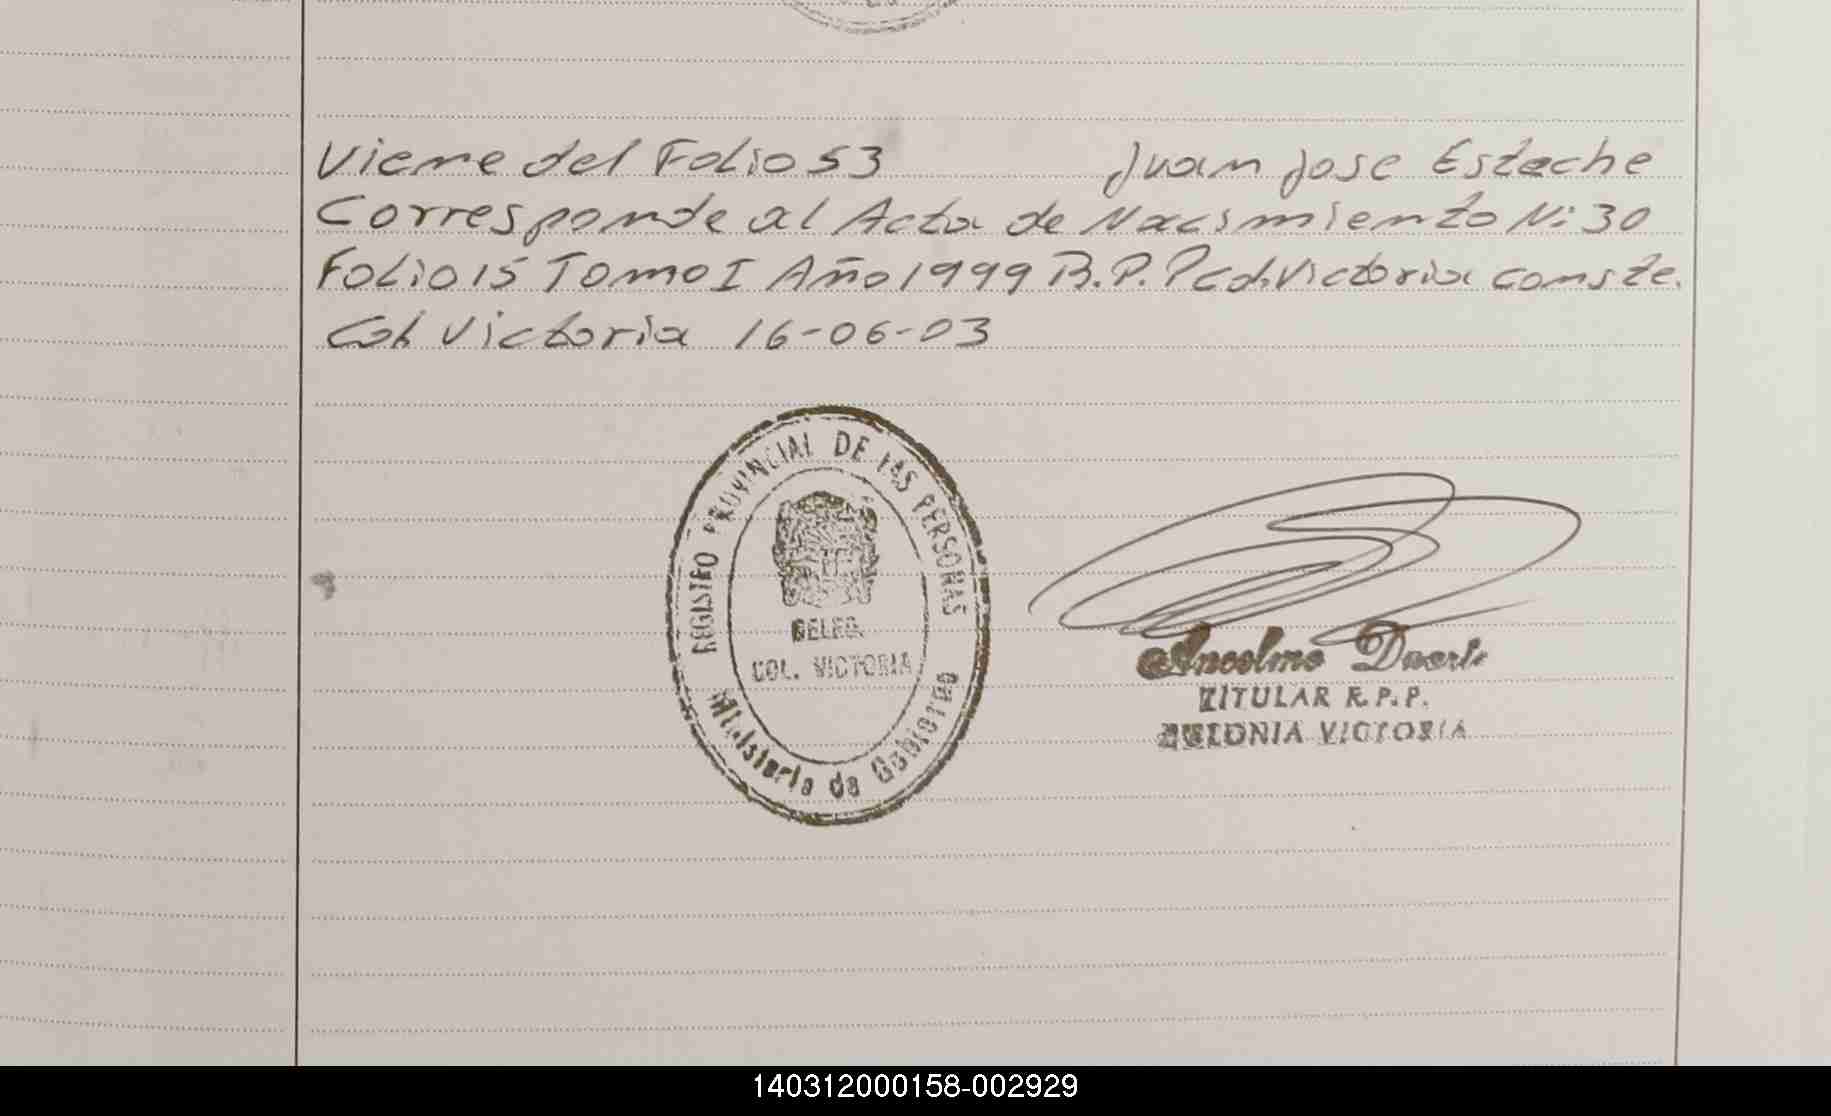 Viene del Folio 53 Juan Jose Esteche
Corresponde al Acta de Nacimiento N: 30
Folio 15 Tomo I Año 1999 R.P.P Col. Victoria conste.
Col. Victoria 16-06-03
REGISTRO PROVINCIAL DE LAS PERSONAS
DELEG.
COL. VICTORIA
Ministerio de Gobierno
Anselmo Duarte
TITULAR R.P.P.
COLONIA VICTORIA
140312000158-002929